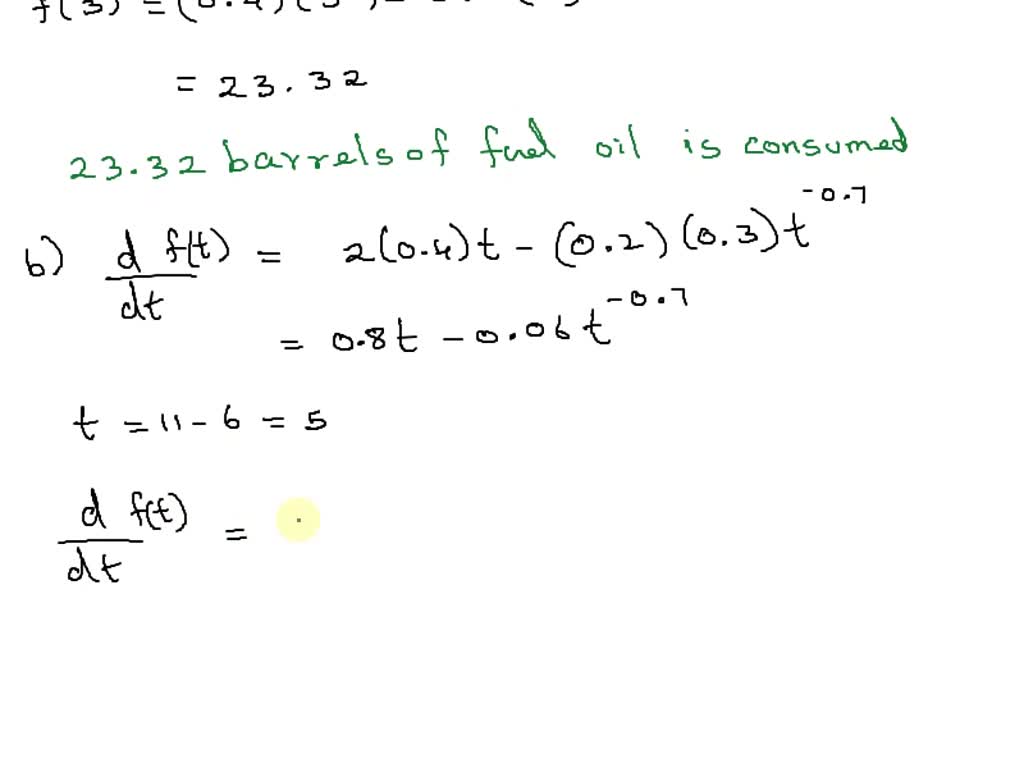 f(3) = (0.4)(3
= 23.32
23.32 barrels of fuel oil is consumed
b) d f(t) / dt = 2(0.4)t - (0.2)(0.3)t^-0.7
= 0.8t - 0.06t^-0.7
t = 11 - 6 = 5
d f(t) / dt =